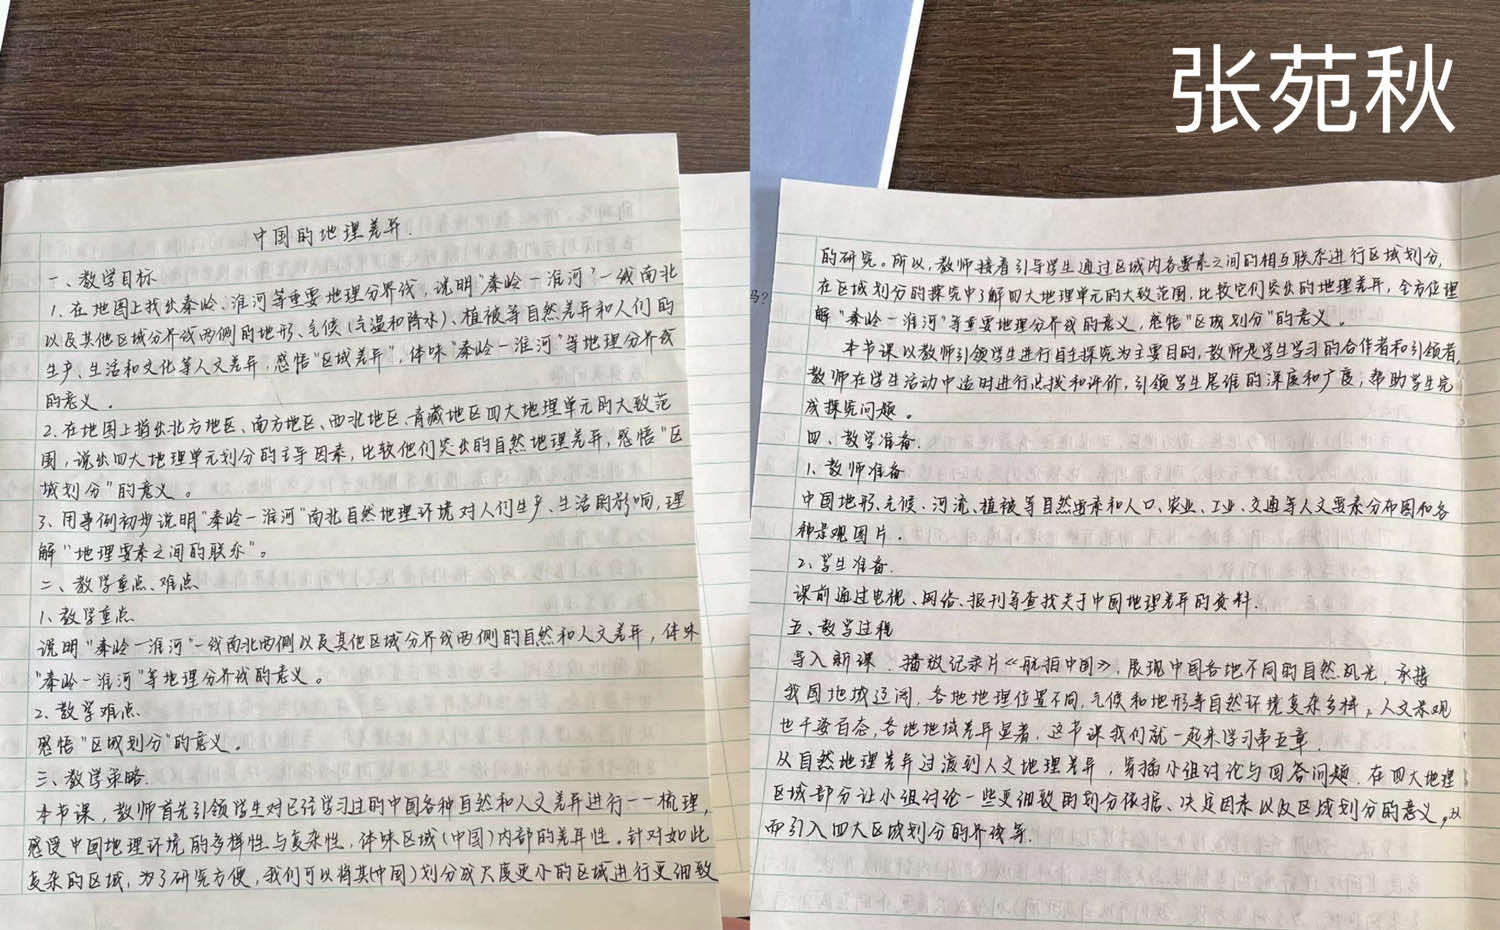 中国的地理差异.
一、教学目标
1.在地图上找出秦岭、淮河等重要地理分界线，说明“秦岭一淮河”一线南北
以及其他区域分界线两侧的地形、气候(气温和降水)、植被等自然差异和人们的
生产、生活和文化等人文差异，感悟“区域差异”，体味“秦岭一淮河”等地理分界线
的意义。
2.在地图上指出北方地区、南方地区、西北地区、青藏地区四大地理单元的大致范
围，说出四大地理单元划分的主导因素，比较他们突出的自然地理差异，感悟“区
域划分”的意义。
3、用事例初步说明“秦岭一淮河”南北自然地理环境对人们生产、生活的影响，理
解“地理要素之间的联系”。
二、教学重点、难点
1、教学重点
说明“秦岭一淮河”一线南北两侧以及其他区域分界线两侧的自然和人文差异，体味
“秦岭一淮河”等地理分界线的意义。
2.教学难点
感悟“区域划分”的意义。
三、教学策略.
本节课，教师首先引领学生对已经学习过的中国各种自然和人文差异进行一一梳理，
感受中国地理环境的多样性与复杂性，体味区域(中国)内部的差异性。针对如此
复杂的区域，为了研究方便，我们可以将其(中国)划分成尺度更小的区域进行更细致
张苑秋
吗？
的研究。所以，教师接着引导学生通过区域内各要素之间的相互联系进行区域划分，
在区域划分的探究中了解四大地理单元的大致范围，比较它们突出的地理差异，全方位理
解“秦岭一淮河”等重要地理分界线的意义，感悟“区域划分”的意义。
本节课以教师引领学生进行自主探究为主要目的，教师是学生学习的合作者和引领者，
教师在学生活动中适时进行点拨和评价，引领学生思维的深度和广度；帮助学生完
成探究问题。
四、教学准备.
1、教师准备
中国地形、气候、河流、植被等自然要素和人口、农业、工业、交通等人文要素分布图和各
种景观图片.
2、学生准备.
课前通过电视、网络、报刊等查找关于中国地理差异的资料.
五、教学过程
导入新课：播放记录片《航拍中国》，展现中国各地不同的自然风光，承接
我国地域辽阔，各地地理位置不同，气候和地形等自然环境复杂多样，人文景观
也千姿百态，各地地域差异显著，这节课我们就一起来学习第五章.
从自然地理差异过渡到人文地理差异，穿插小组讨论与回答问题.在四大地理
区域部分让小组讨论一些更细致的划分依据、决定因素以及区域划分的意义，从
而引入四大区域划分的界线等.